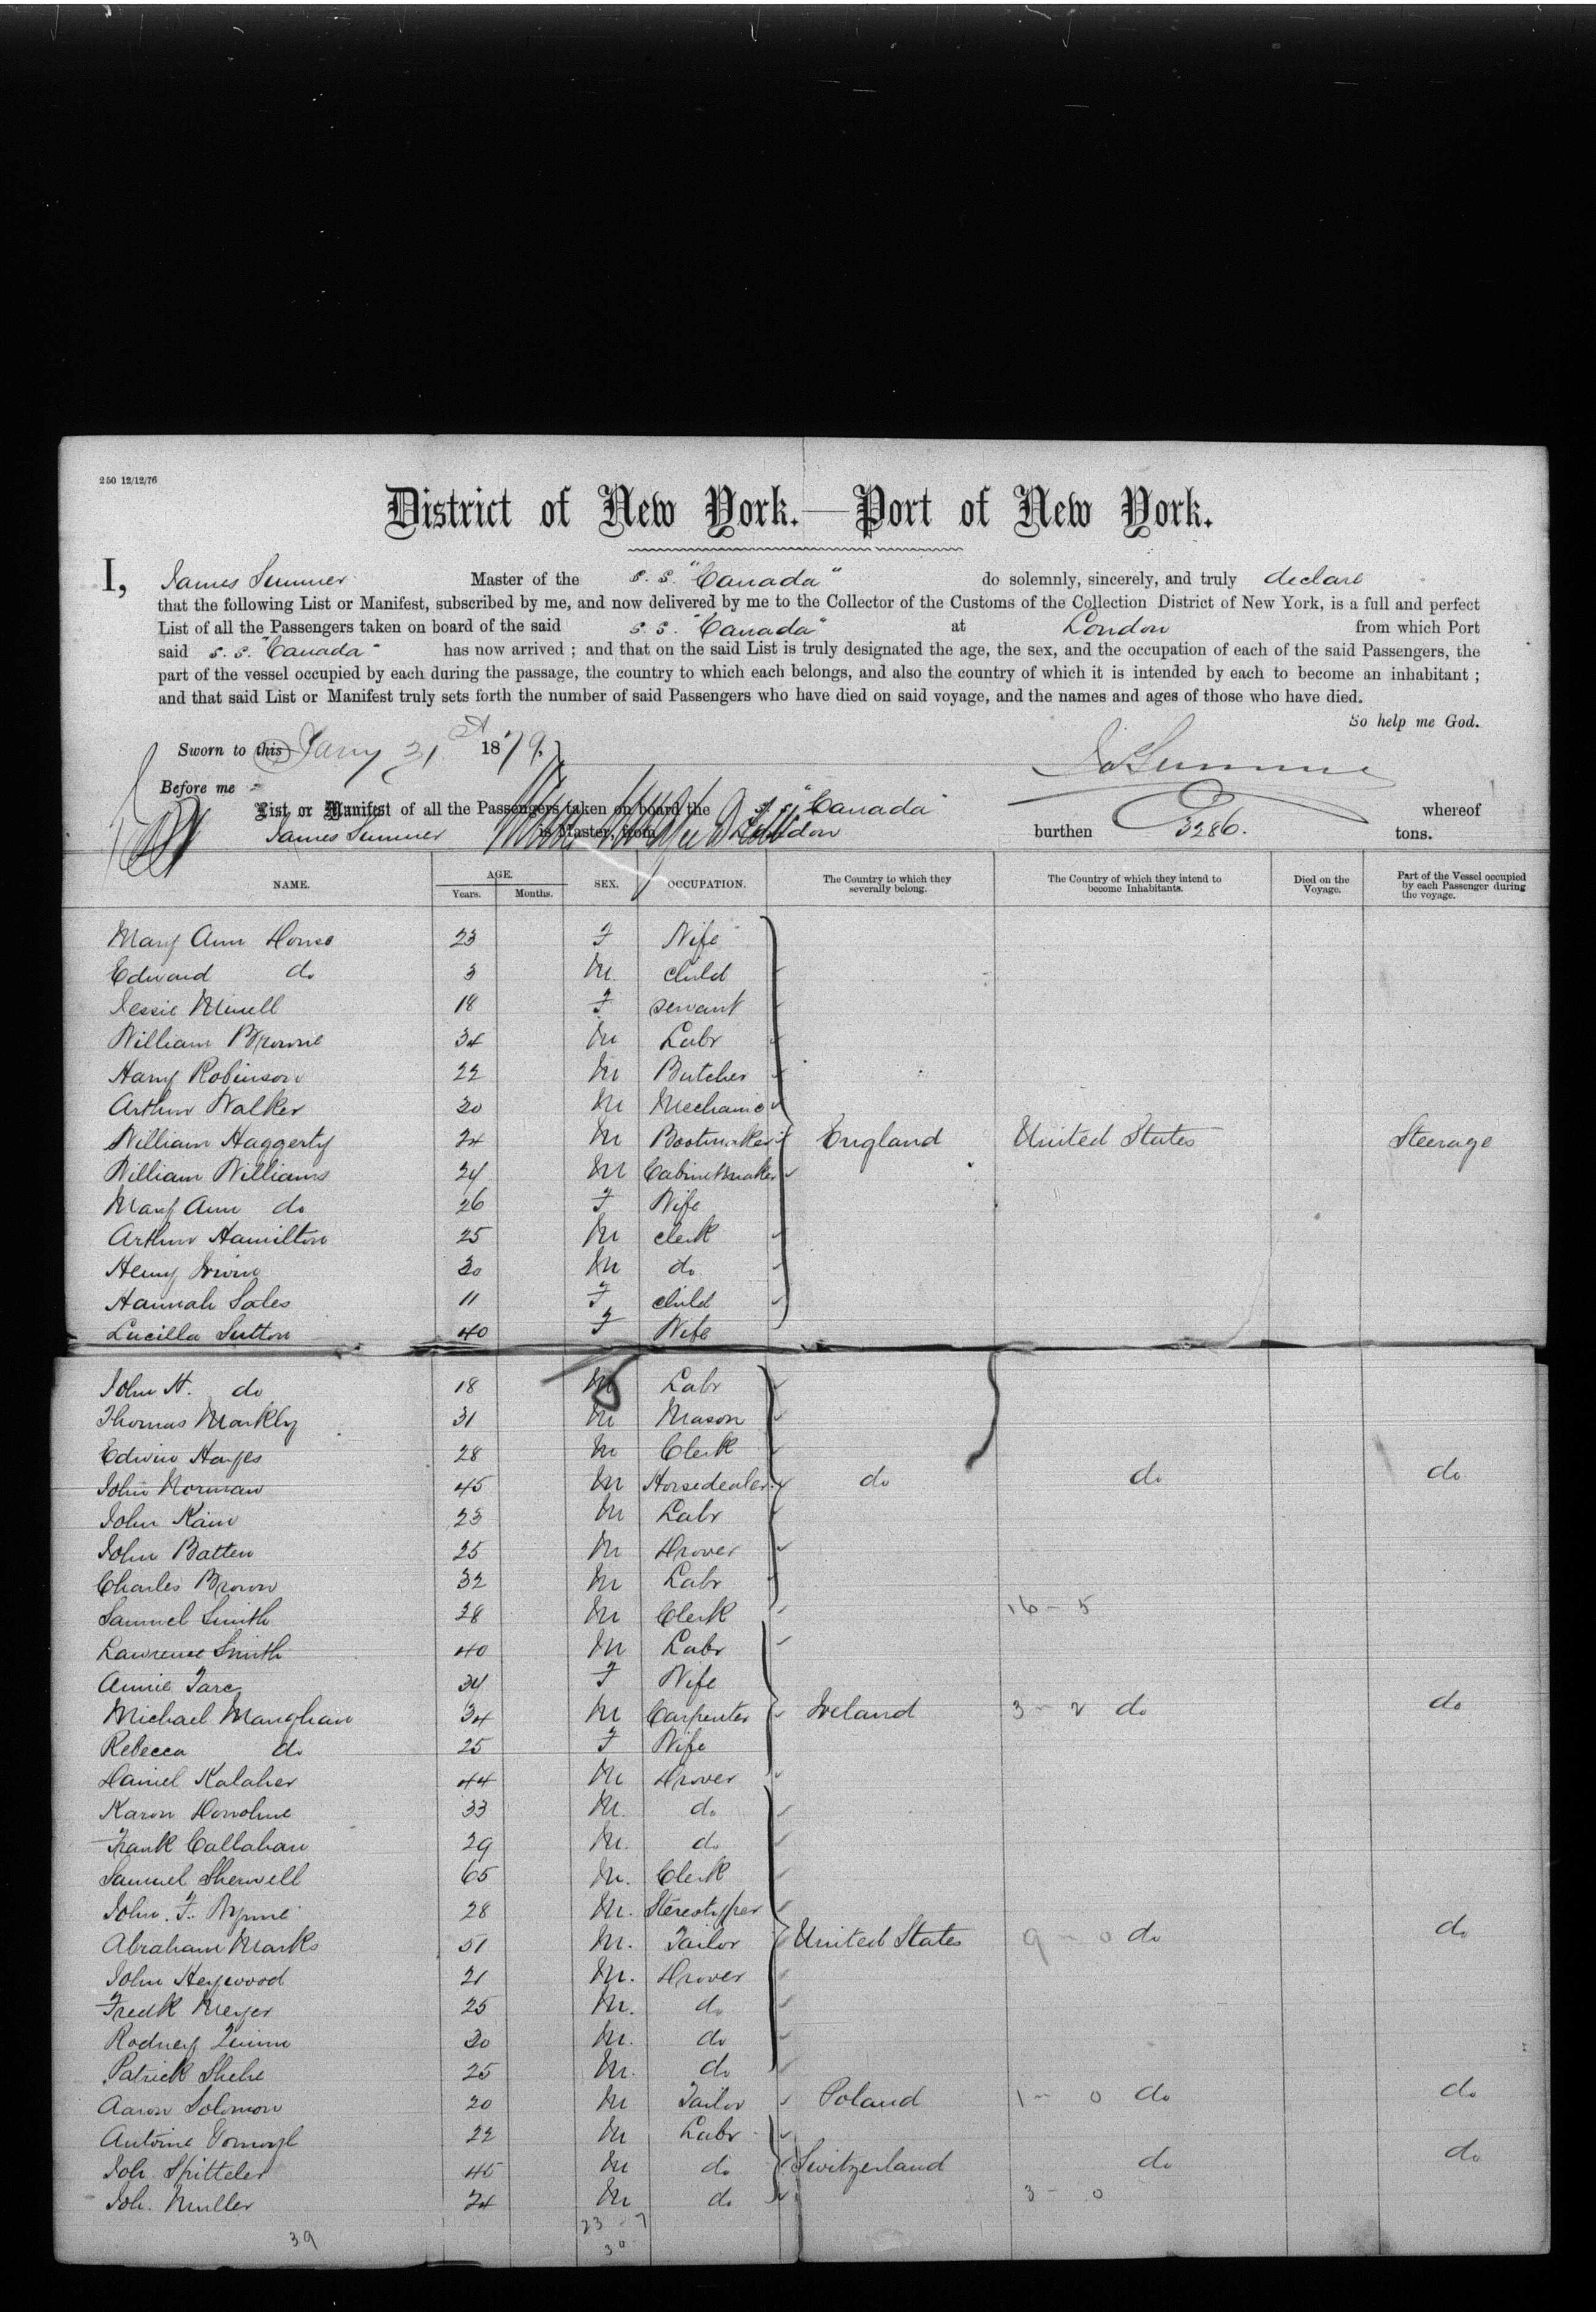 250 12/12/76
District of New York.—Port of New York.
I, James Sumner Master of the S. S. "Canada" do solemnly, sincerely, and truly declare
that the following List or Manifest, subscribed by me, and now delivered by me to the Collector of the Customs of the Collection District of New York, is a full and perfect
List of all the Passengers taken on board of the said S. S. "Canada" at London from which Port
said S. S. "Canada" has now arrived ; and that on the said List is truly designated the age, the sex, and the occupation of each of the said Passengers, the
part of the vessel occupied by each during the passage, the country to which each belongs, and also the country of which it is intended by each to become an inhabitant ;
and that said List or Manifest truly sets forth the number of said Passengers who have died on said voyage, and the names and ages of those who have died.
So help me God.
Sworn to this Jany 31st 1879.
Jas Sumner
Before me
List or Manifest of all the Passengers taken on board the S. S. "Canada" whereof
James Sumner is Master, from London burthen 3286. tons.
NAME. AGE. SEX. OCCUPATION. The Country to which they severally belong. The Country of which they intend to become Inhabitants. Died on the Voyage. Part of the Vessel occupied by each Passenger during the voyage.
Years. Months.
Mary Ann House 23 F Wife
Edward do 3 M. child
Jessie Minell 18 F servant
William Browne 34 M Labr
Harry Robinson 22 M Butcher
Arthur Walker 20 M Mechanic
William Haggerty 24 M Bootmaker England United States Steerage
William Williams 24 M Cabinetmaker
Mary Ann do 26 F Wife
Arthur Hamilton 25 M clerk
Henry Irwin 30 M do
Hannah Sales 11 F child
Lucilla Sutton 40 F Wife
John H. do 18 M Labr
Thomas Markly 31 M Mason
Edwin Hayes 28 M Clerk
John Norman 45 M Horsedealer do do do
John Kain 23 M Labr
John Batten 25 M Drover
Charles Brown 32 M Labr
Samuel Smith 28 M Clerk 16 - 5
Lawrence Smith 40 M Labr
Annie 34 F Wife
Michael Manghan 34 M Carpenter Ireland 3 - 2 do do
Rebecca do 25 F Wife
Daniel Kalaher 44 M Drover
Karon Donohue 33 M. do
Frank Callahan 29 M. do
Samuel Sherwell 65 M. Clerk
John. F. Byrne 28 M. Stereotyper
Abraham Marks 51 M. Tailor United States 9 - 0 do do
John Heywood 21 M. Drover
Fredk Meyer 25 M. do
Rodney Quinn 20 M. do
Patrick Shehe 25 M. do
Aaron Solomon 20 M Tailor Poland 1 - 0 do do
Antoine 22 M Labr
Joh. Spitteler 45 M do Switzerland do do
Joh. Muller 24 M do 3 - 0
39 23 - 7
30